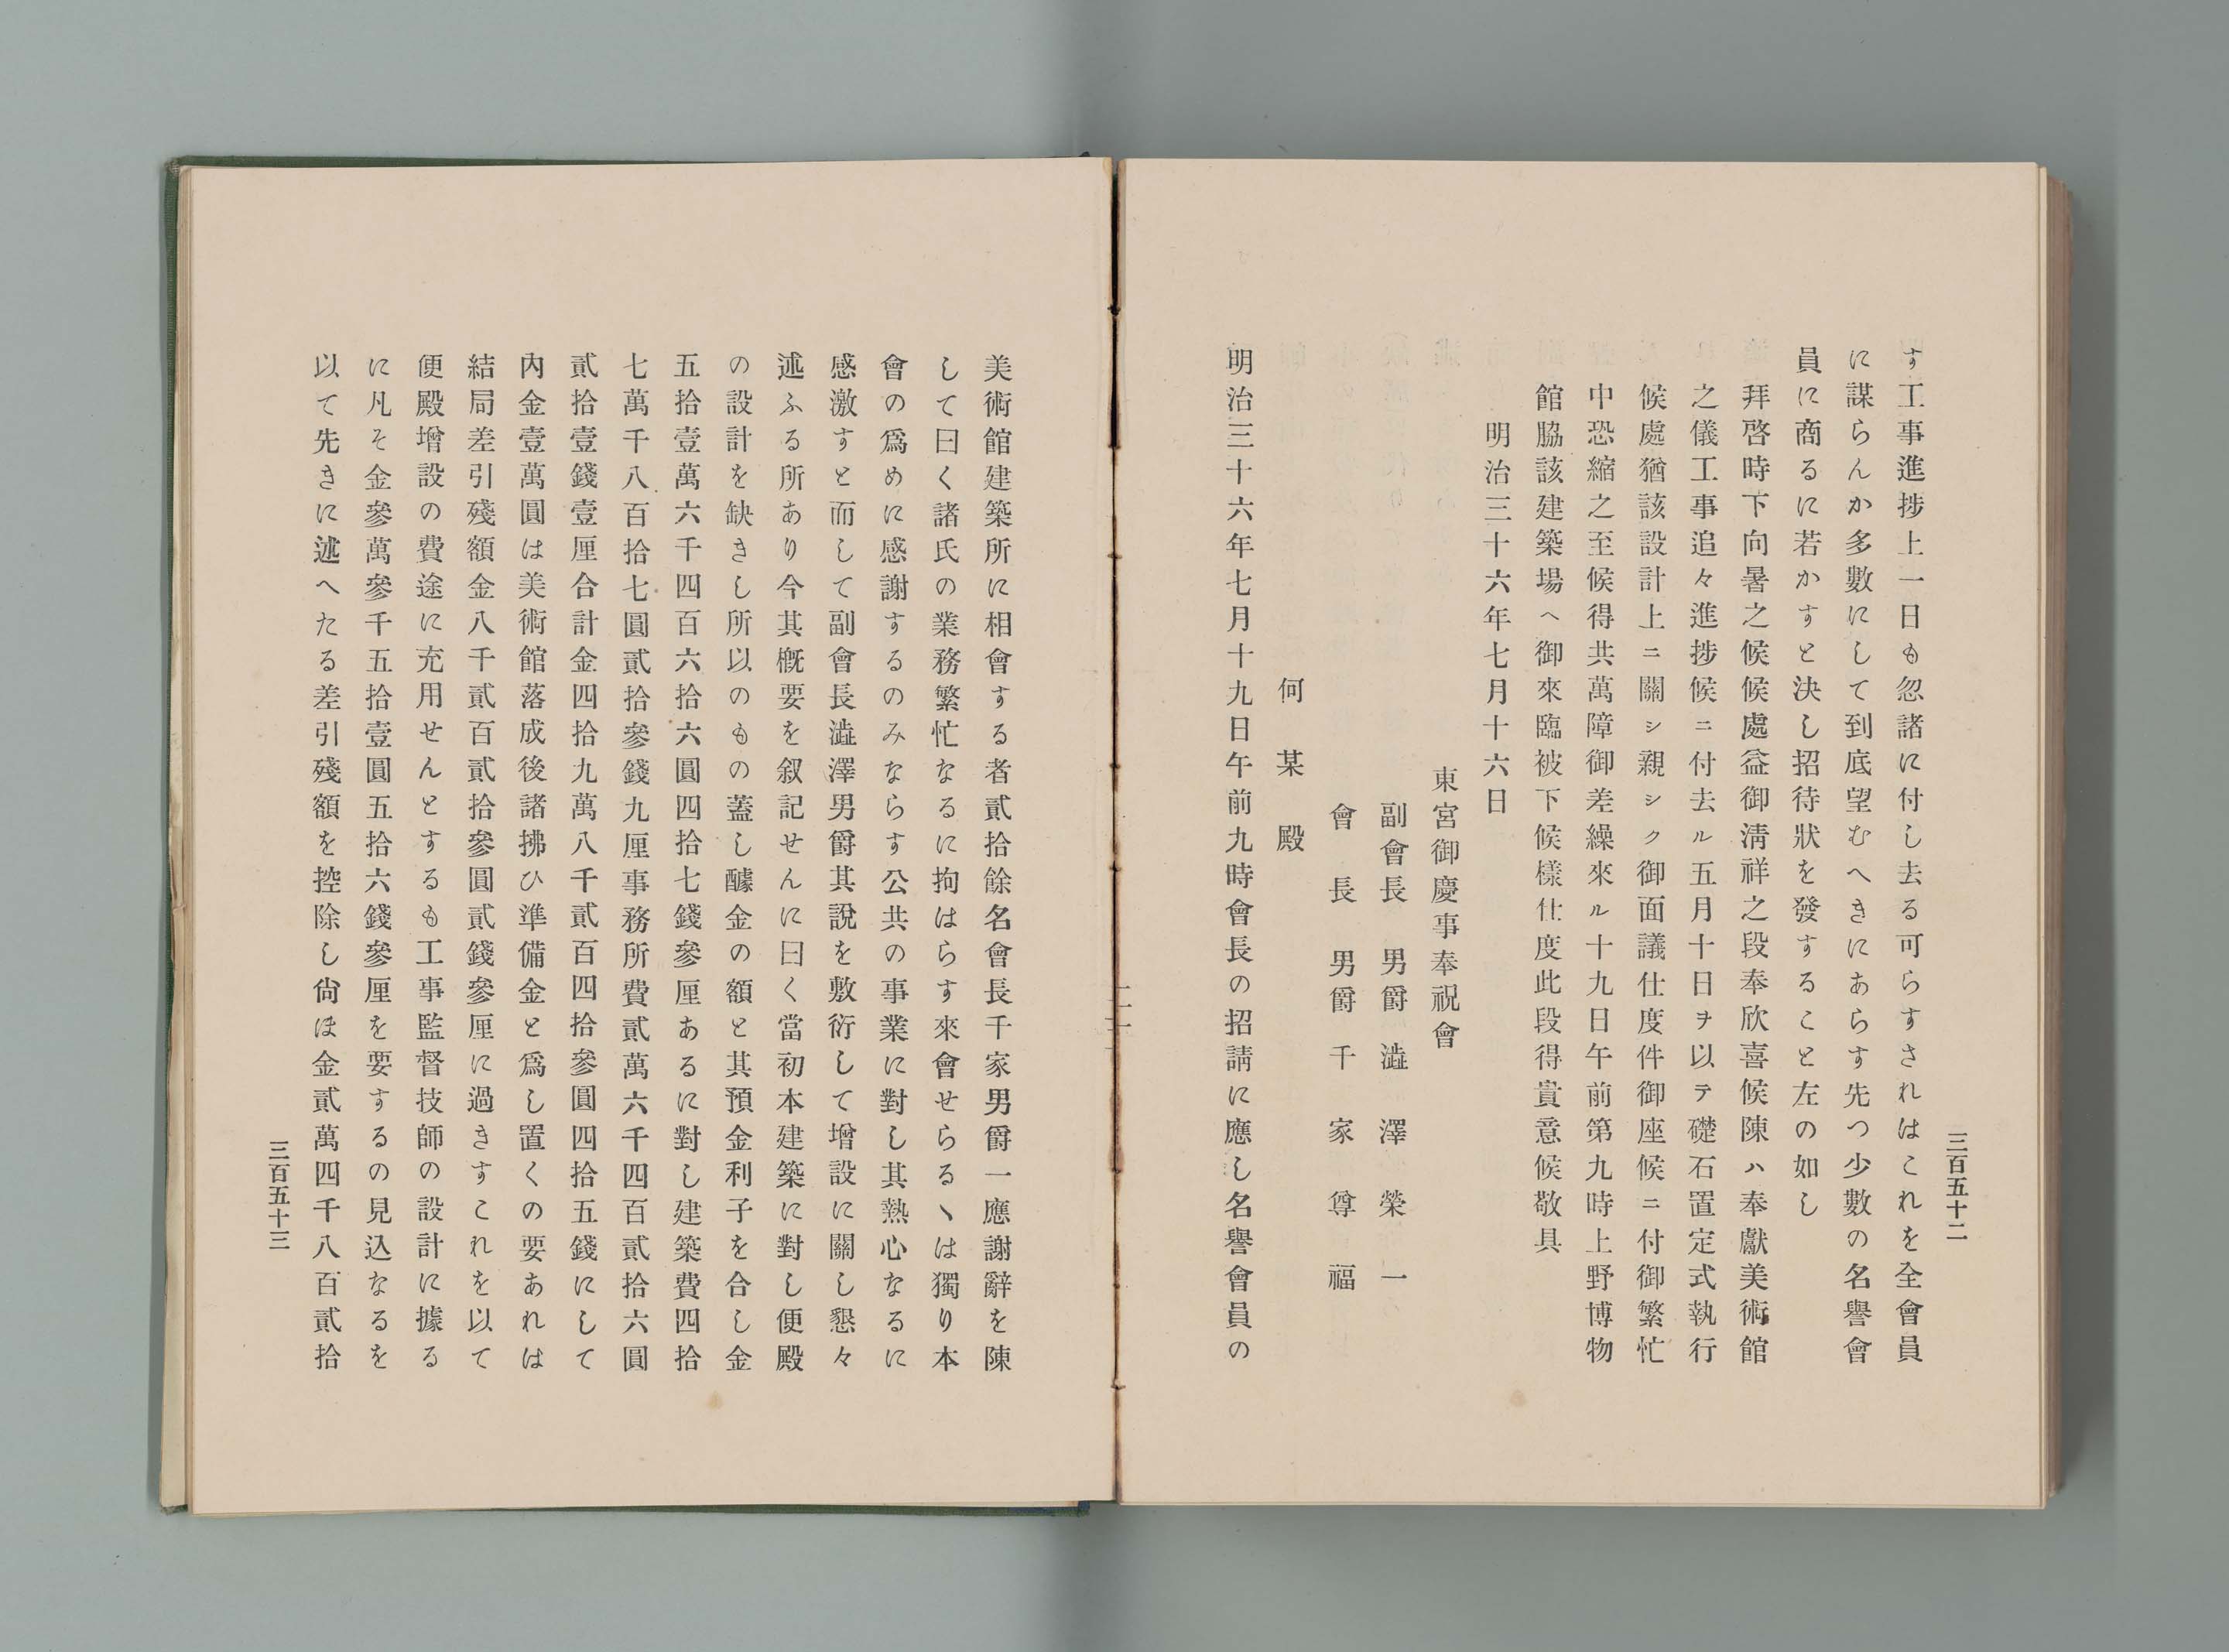 三百五十二
す工事進捗上一日も忽諸に付し去る可らすされはこれを全會員
に謀らんか多數にして到底望むへきにあらす先つ少數の名譽會
員に商るに若かすと決し招待狀を發すること左の如し
拜啓時下向暑之候候處益御淸祥之段奉欣喜候陳ハ奉獻美術館
之儀工事追々進捗候ニ付去ル五月十日ヲ以テ礎石置定式執行
候處猶該設計上ニ關シ親シク御面議仕度件御座候ニ付御繁忙
中恐縮之至候得共萬障御差繰來ル十九日午前第九時上野博物
館脇該建築場へ御來臨被下候樣仕度此段得貴意候敬具
明治三十六年七月十六日
東宮御慶事奉祝會
副會長 男爵 澁澤榮一
會長 男爵 千家尊福
何某殿
明治三十六年七月十九日午前九時會長の招請に應し名譽會員の
美術館建築所に相會する者貳拾餘名會長千家男爵一應謝辭を陳
して曰く諸氏の業務繁忙なるに拘はらす來會せらるヽは獨り本
會の爲めに感謝するのみならす公共の事業に對し其熱心なるに
感激すと而して副會長澁澤男爵其說を敷衍して增設に關し懇々
述ふる所あり今其槪要を叙記せんに曰く當初本建築に對し便殿
の設計を缺きし所以のもの蓋し醵金の額と其預金利子を合し金
五拾壹萬六千四百六拾六圓四拾七錢參厘あるに對し建築費四拾
七萬千八百拾七圓貳拾參錢九厘事務所費貳萬六千四百貳拾六圓
貳拾壹錢壹厘合計金四拾九萬八千貳百四拾參圓四拾五錢にして
內金壹萬圓は美術館落成後諸拂ひ準備金と爲し置くの要あれは
結局差引殘額金八千貳百貳拾參圓貳錢參厘に過きすこれを以て
便殿增設の費途に充用せんとするも工事監督技師の設計に據る
に凡そ金參萬參千五拾壹圓五拾六錢參厘を要するの見込なるを
以て先きに述へたる差引殘額を控除し尙ほ金貳萬四千八百貳拾
三百五十三